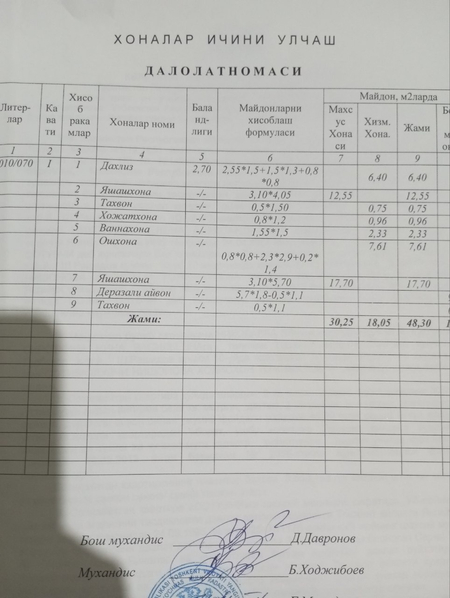 ХОНАЛАР ИЧИНИ УЛЧАШ
ДАЛОЛАТНОМАСИ
Литер-лар Ка ва ти Хисоб рака млар Хоналар номи Бала нд-лиги Майдонларни хисоблаш формуласи Майдон, м2ларда
Махсус Хона си Хизм. Хона. Жами
1 2 3 4 5 6 7 8 9
010/070 I 1 Дахлиз 2,70 2,55*1,5+1,5*1,3+0,8*0,8 6,40 6,40
2 Яшашхона -/- 3,10*4,05 12,55 12,55
3 Тахвон -/- 0,5*1,50 0,75 0,75
4 Хожатхона -/- 0,8*1,2 0,96 0,96
5 Ваннахона -/- 1,55*1,5 2,33 2,33
6 Ошхона -/- 0,8*0,8+2,3*2,9+0,2*1,4 7,61 7,61
7 Яшашхона -/- 3,10*5,70 17,70 17,70
8 Деразали айвон -/- 5,7*1,8-0,5*1,1
9 Тахвон -/- 0,5*1,1
Жами: 30,25 18,05 48,30
Бош мухандис Д.Давронов
Мухандис Б.Ходжибоев